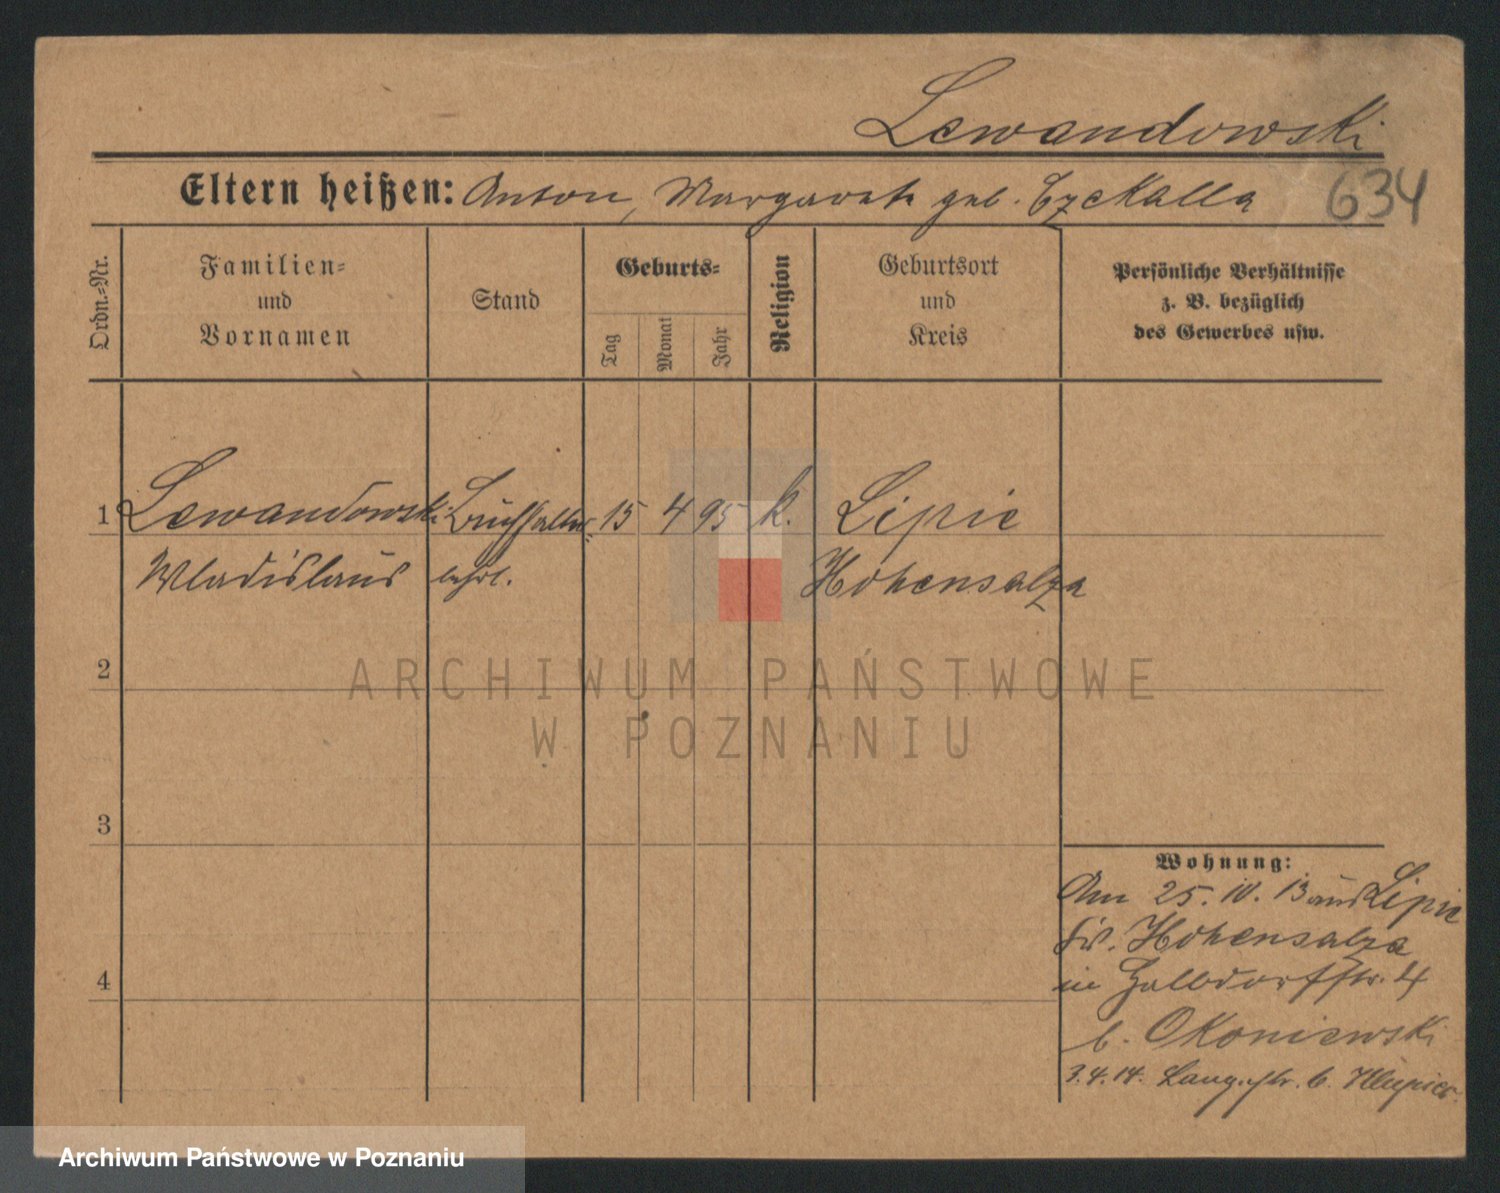 Lewandowski
Eltern heißen: Anton, Margarete geb. Czekalla 634
Ordn.-Nr.
Familien-
und
Vornamen
Stand
Geburts-
Tag
Monat
Jahr
Religion
Geburtsort
und
Kreis
Persönliche Verhältnisse
z. B. bezüglich
des Gewerbes usw.
1 Lewandowski Buchhalter- 15 4 95 k. Lipie
Wladislaus lehrl. Hohensalza
2
3
4
Wohnung:
Am 25. 10. 13 aus Lipie
Kr. Hohensalza
in Halbdorfstr. 4
b. Okoniewski
3.4.14. Lang.str. b.
ARCHIWUM PAŃSTWOWE
W POZNANIU
Archiwum Państwowe w Poznaniu